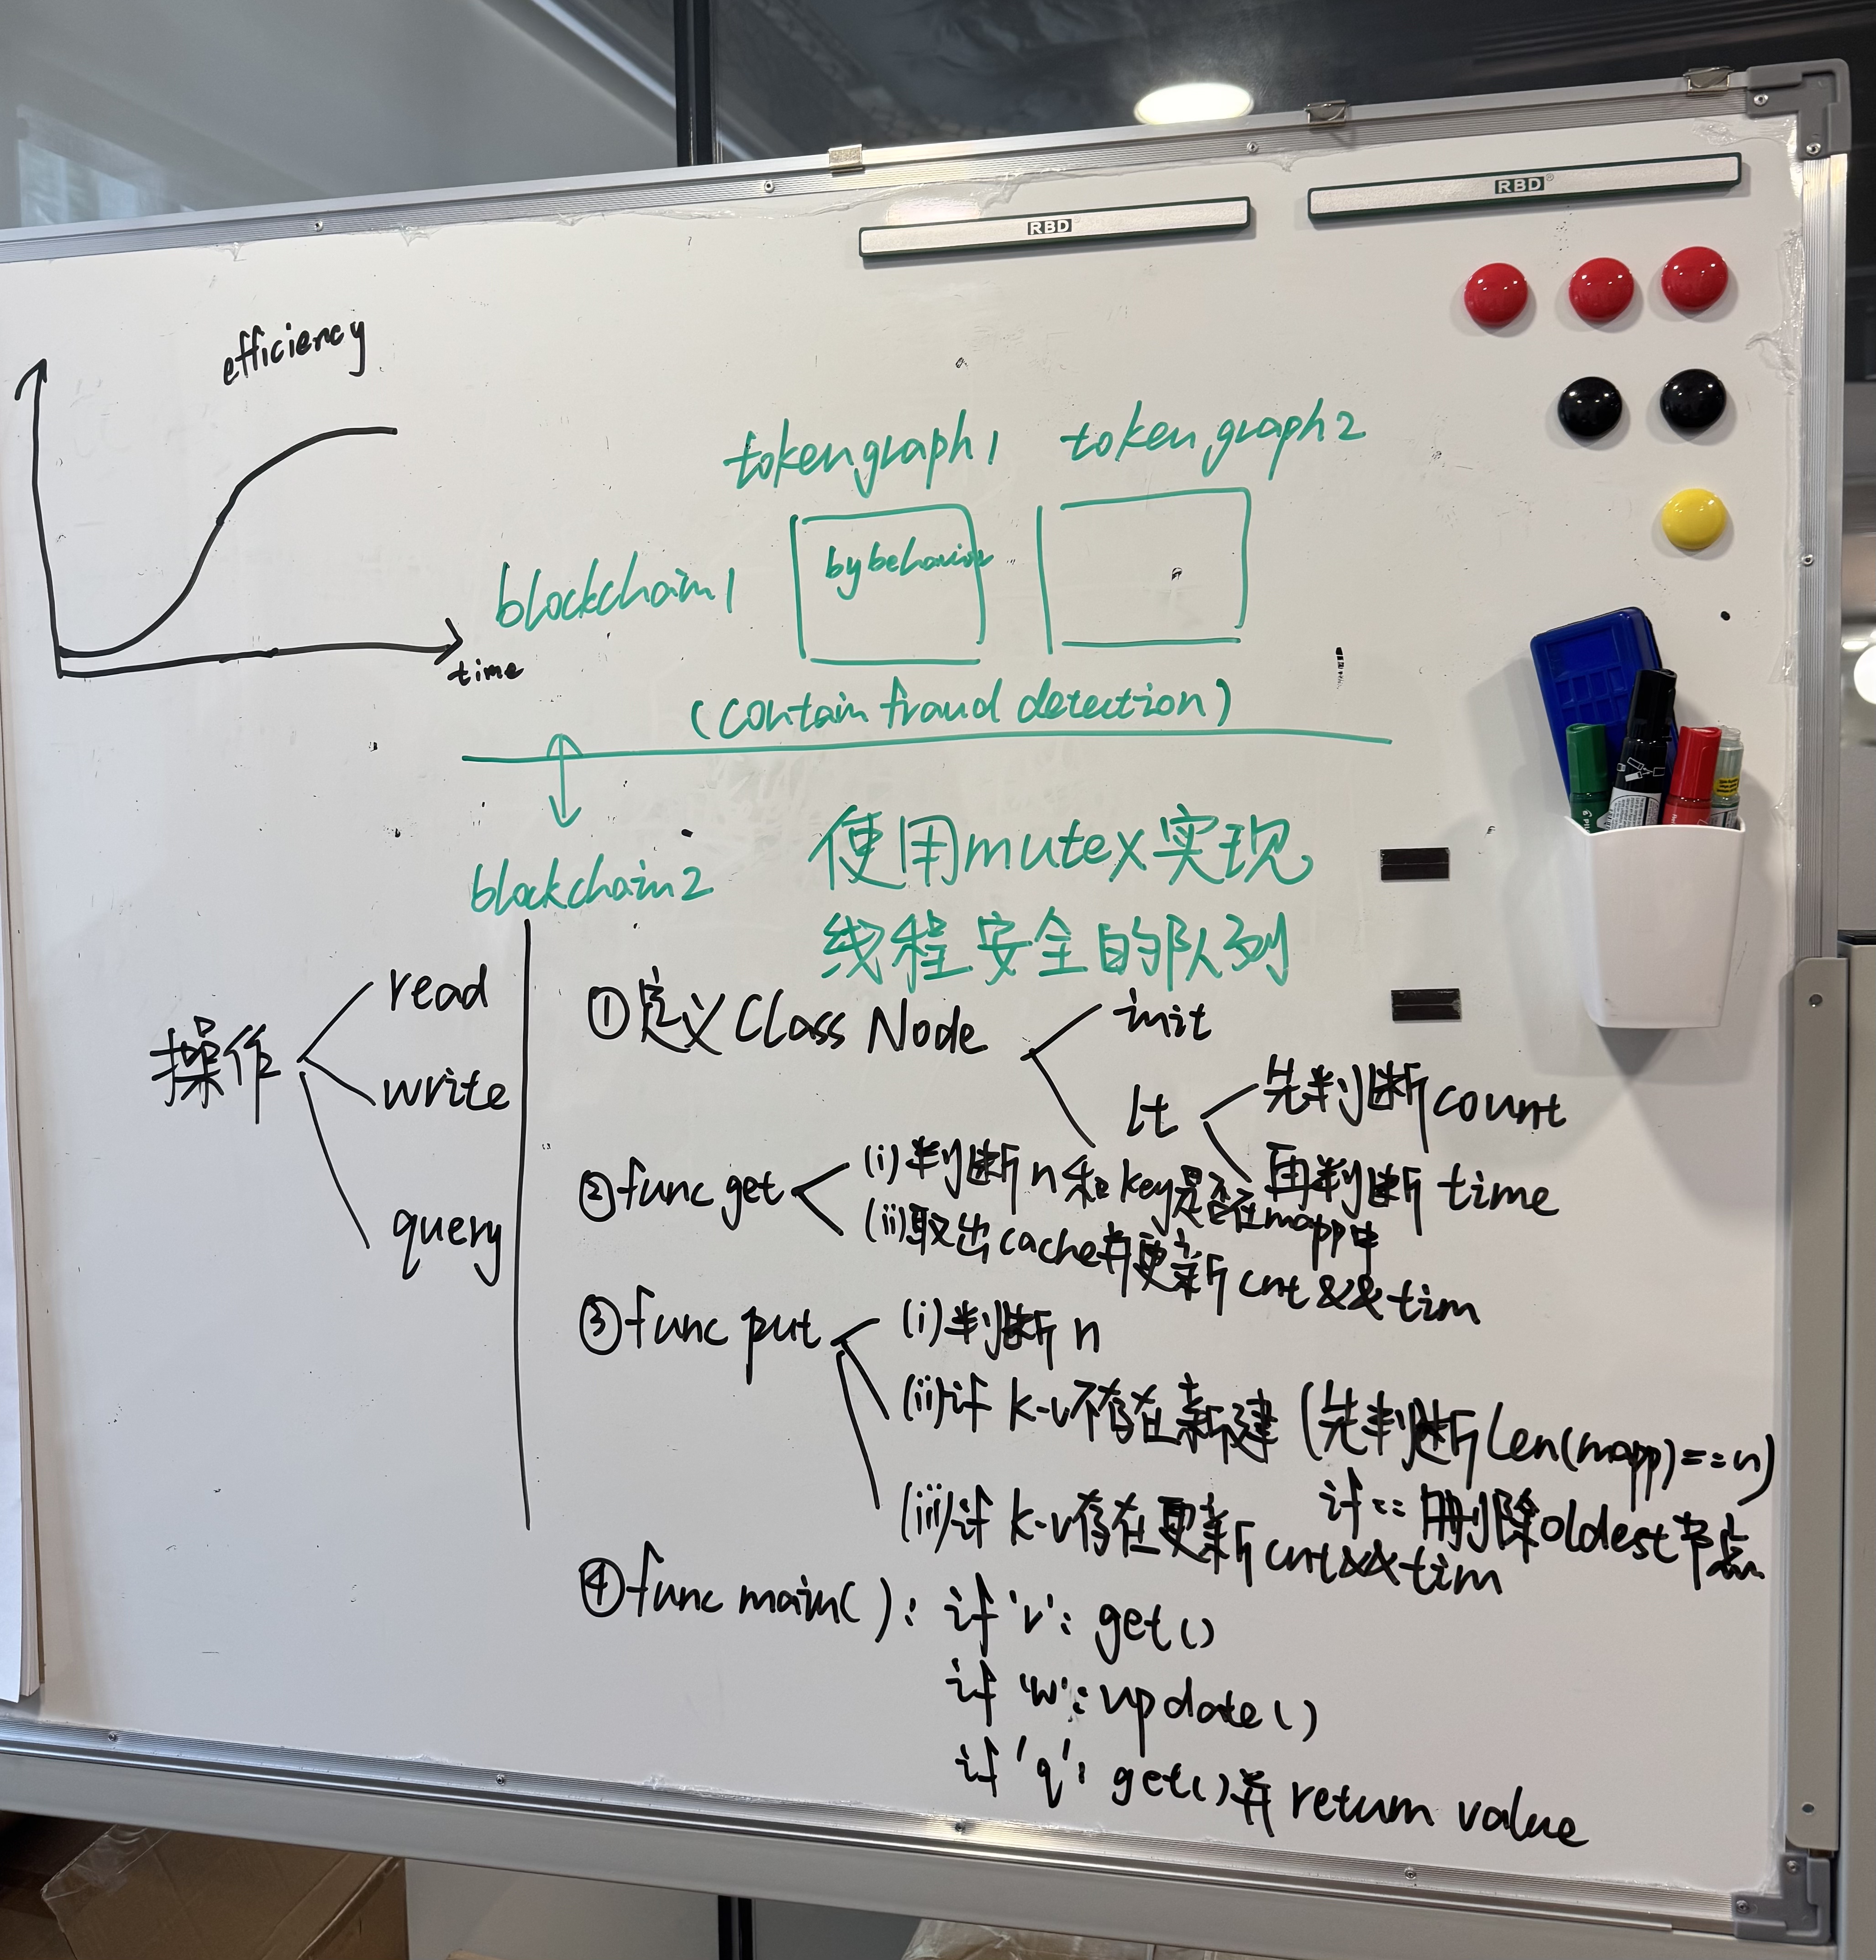 RBD
RBD
efficiency
time
tokengraph1
token graph2
blockchain1
by behavior
(contain fraud detection)
blockchain2
使用mutex实现
线程安全的队列
操作
read
write
query
①定义Class Node
init
lt
先判断count
再判断time
②func get
(i)判断n和key是否在mapp中
(ii)取出cache并更新cnt&&tim
③func put
(i)判断n
(ii)if k-v不存在新建(先判断len(mapp)==n)
if== 删除oldest节点
(iii)if k-v存在更新cnt&&tim
④func main():
if 'r': get()
if 'w': update()
if 'q': get()并return value